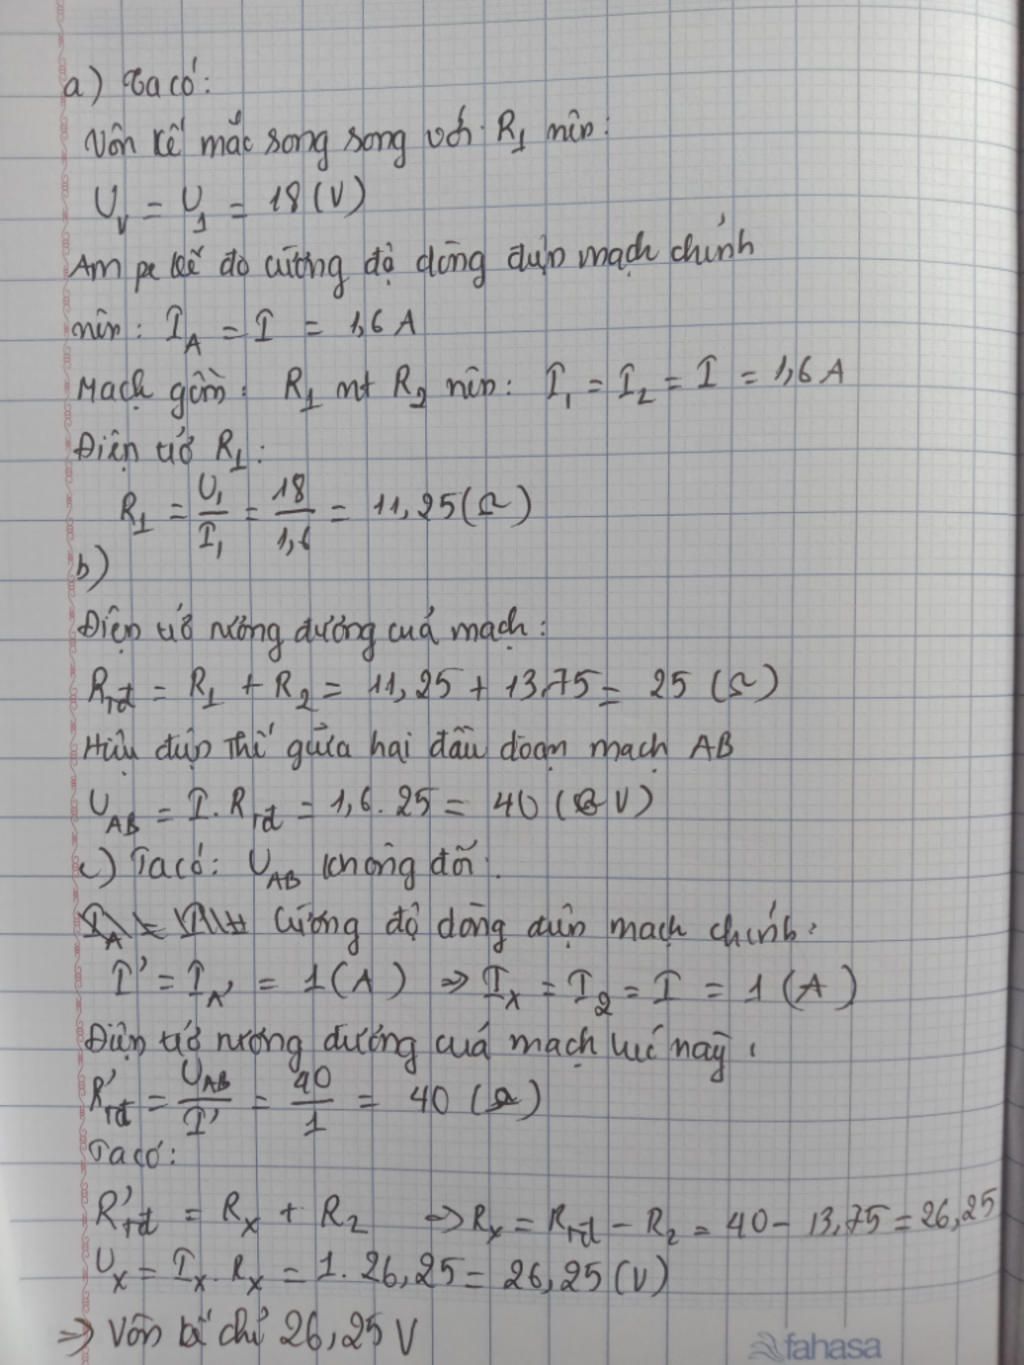 a) Ta có:
Vôn kế mắc song song với R₁ nên:
U_V = U₁ = 18 (V)
Am pe kế đo cường độ dòng điện mạch chính
nên: I_A = I = 1,6 A
Mạch gồm: R₁ nt R₂ nên: I₁ = I₂ = I = 1,6 A
Điện trở R₁:
R₁ = U₁/I₁ = 18/1,6 = 11,25 (Ω)
b)
Điện trở tương đương của mạch:
R_tđ = R₁ + R₂ = 11,25 + 13,75 = 25 (Ω)
Hiệu điện thế giữa hai đầu đoạn mạch AB
U_AB = I . R_tđ = 1,6 . 25 = 40 (V)
c) Ta có: U_AB không đổi.
Cường độ dòng điện mạch chính:
I' = I_A' = 1 (A) => I_x = I₂ = I = 1 (A)
Điện trở tương đương của mạch lúc này:
R'_tđ = U_AB/I' = 40/1 = 40 (Ω)
Ta có:
R'_tđ = R_x + R₂ => R_x = R_tđ - R₂ = 40 - 13,75 = 26,25
U_x = I_x . R_x = 1 . 26,25 = 26,25 (V)
=> Vôn kế chỉ 26,25 V
fahasa